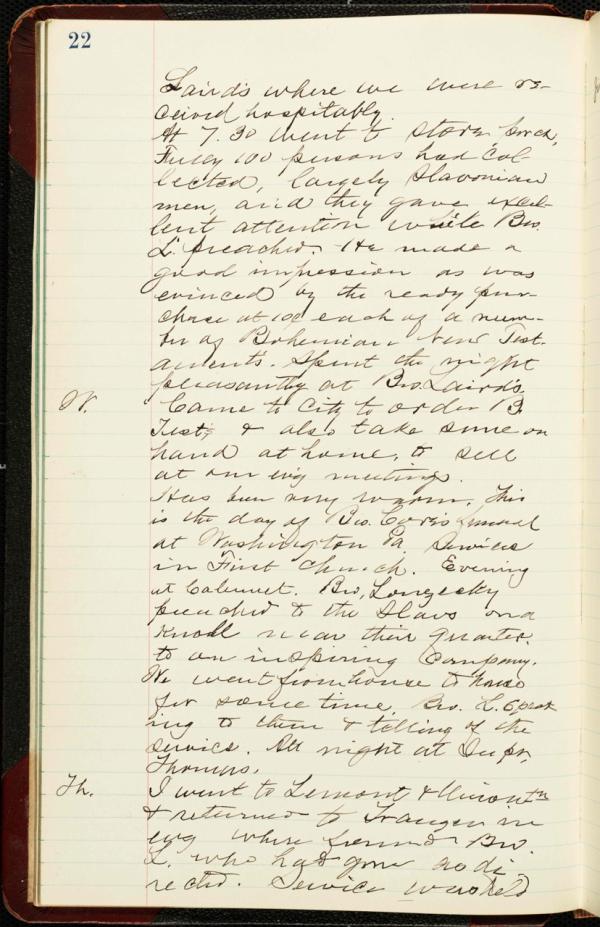 22
Laird's where we were re-
ceived hospitably.
At 7.30 went to store porch,
Fully 100 persons had col-
lected, largely Slavonian
men, and they gave excel-
lent attention while Bro.
L. preached. He made a
good impression as was
evinced by the ready pur-
chase at 10¢ each of a num-
ber of Bohemian New Test-
aments. Spent the night
pleasantly at Bro. Laird's.
W. Came to City to order B.
Tests & also take some on
hand at home, to sell
at our evg meetings.
Has been very warm. This
is the day of Bro. funeral
at Washington Pa. Services
in First Church. Evening
at Calumet. Bro,
preached to the Slavs on a
knoll near their quarters.
to an inspiring company.
We went from house to house
for some time, Bro. L. speak
ing to them & telling of the
service. All night at Supr.
Thomas.
Th. I went to Lemont & Uniontn
& returned to Trauger in
evg where found Bro.
L. who had gone as di
rected. Service was held